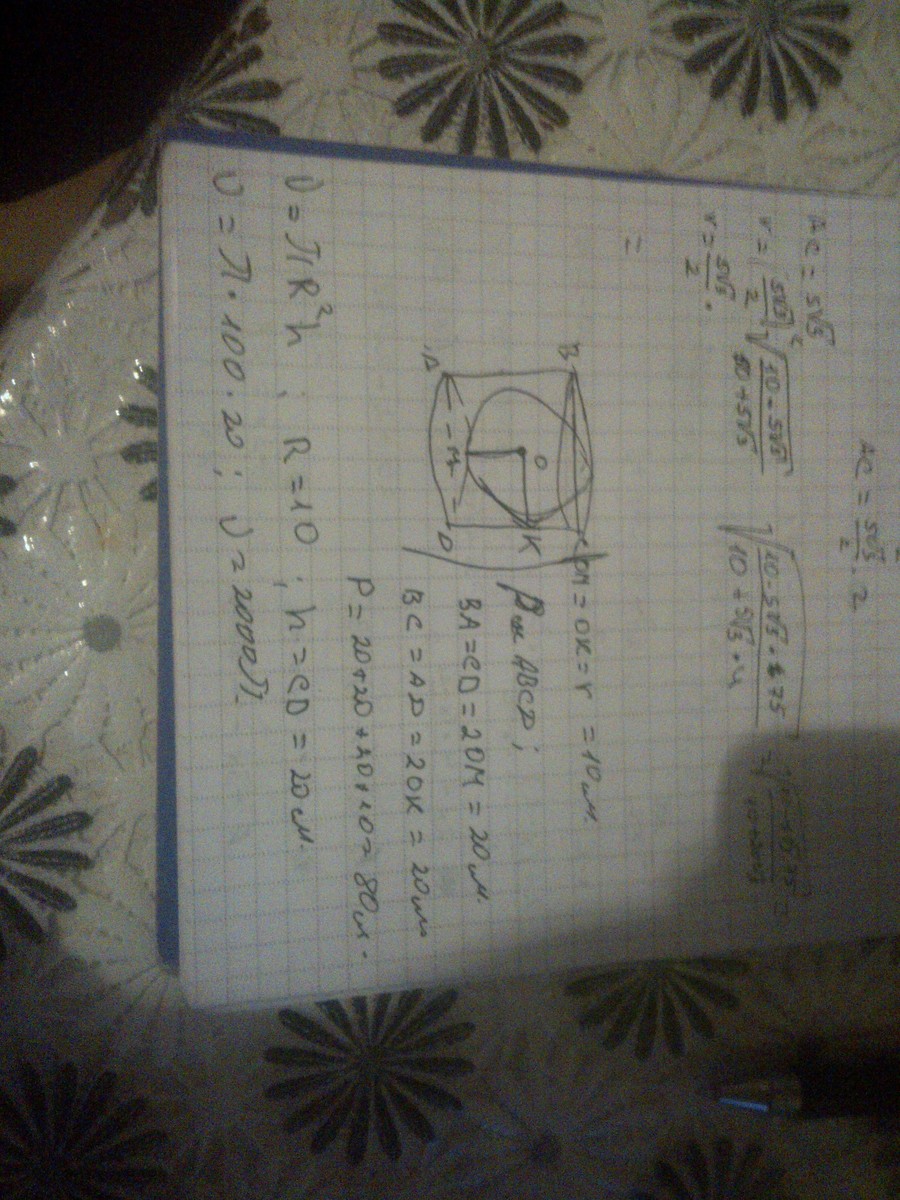 AC = 5√3/2 · 2
AC = 5√3
r = (5√3)/2 √(10 - 5√3)/(10 + 5√3)
√(10 - 5√3 · 75)/(10 + 5√3 · 4) =
r = 5√3/2 ·
=
B
C
O
K
A
M
D
OM = OK = r = 10 см.
ABCD;
BA = CD = 2OM = 20 см.
BC = AD = 2OK = 20 см
P = 20+20+20+20 = 80 см.
V = πR²h ; R = 10 ; h = CD = 20 см.
V = π · 100 · 20 ; V = 2000π.